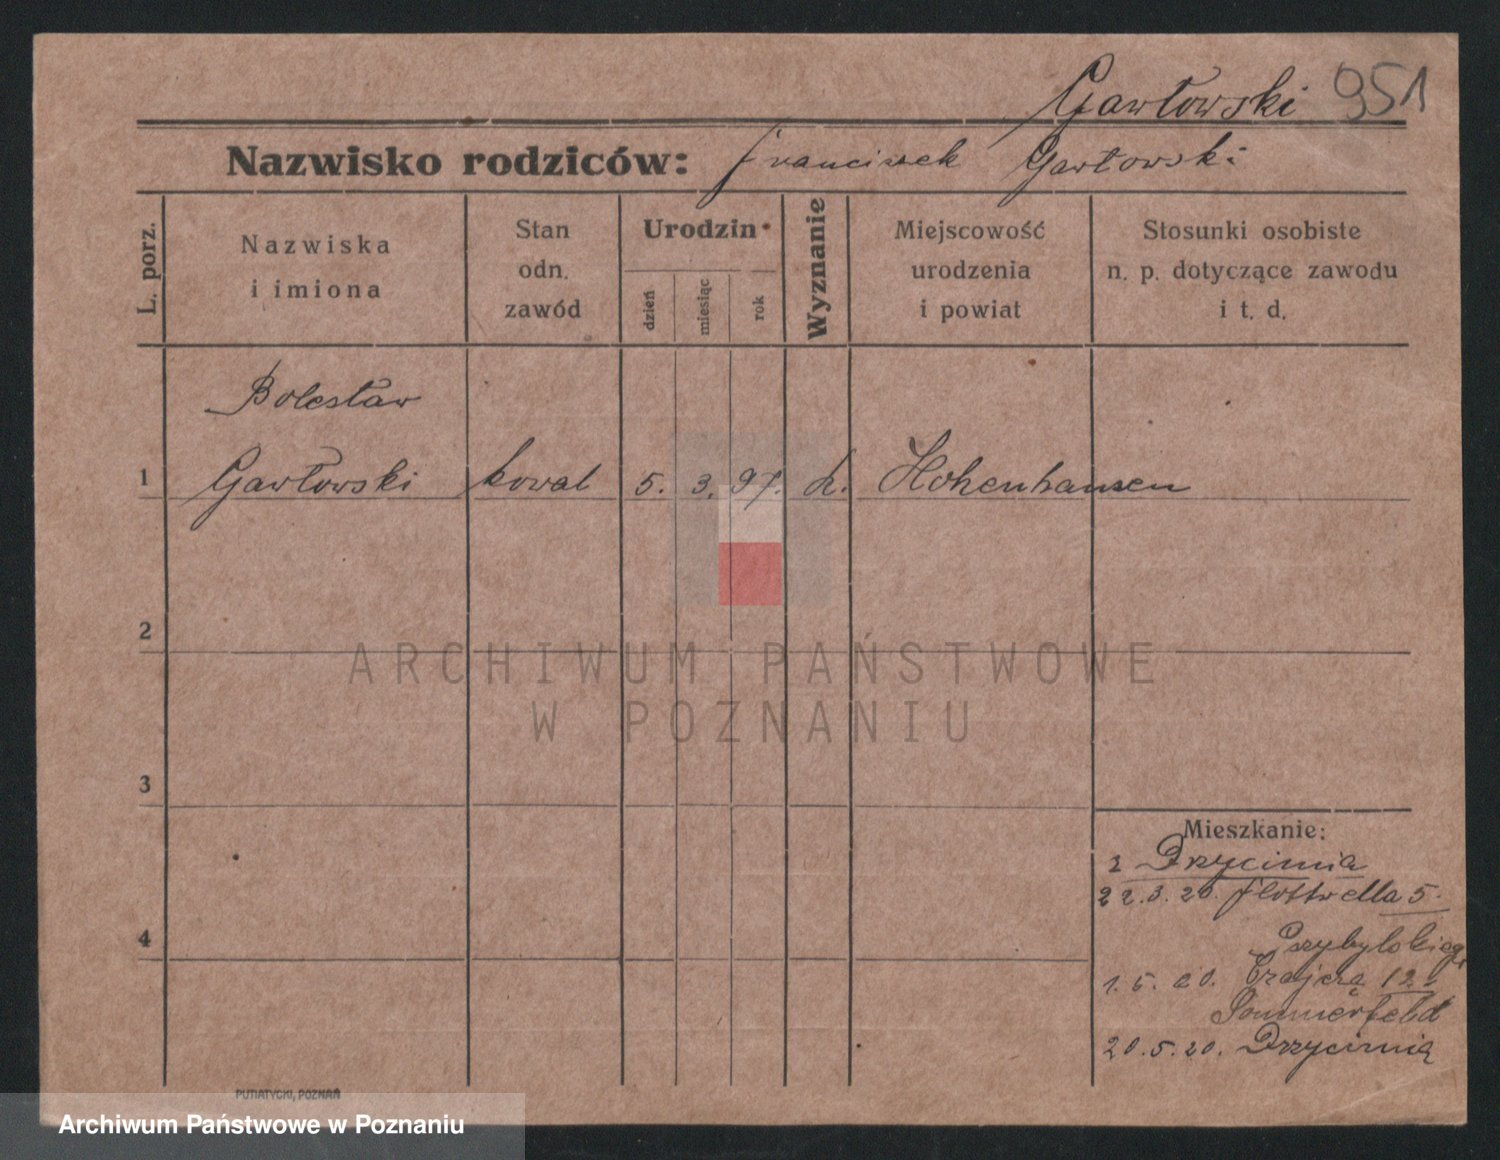 Gawłowski 951
Nazwisko rodziców: Franciszek Gawłowski
L. porz.
Nazwiska
i imiona
Stan
odn.
zawód
Urodzin
dzień
miesiąc
rok
Wyznanie
Miejscowość
urodzenia
i powiat
Stosunki osobiste
n. p. dotyczące zawodu
i t. d.
Bolesław
1 Gawłowski kowal 5. 3. 97. k. Hohenhausen
2
3
4
Mieszkanie:
z Drzycimia
22.3.20. Flottwella 5.
Przybylskiego
1.5.20. 12
Pommerfeld
20.5.20. Drzycimia
PUTIATYCKI, POZNAŃ
ARCHIWUM PAŃSTWOWE
W POZNANIU
Archiwum Państwowe w Poznaniu